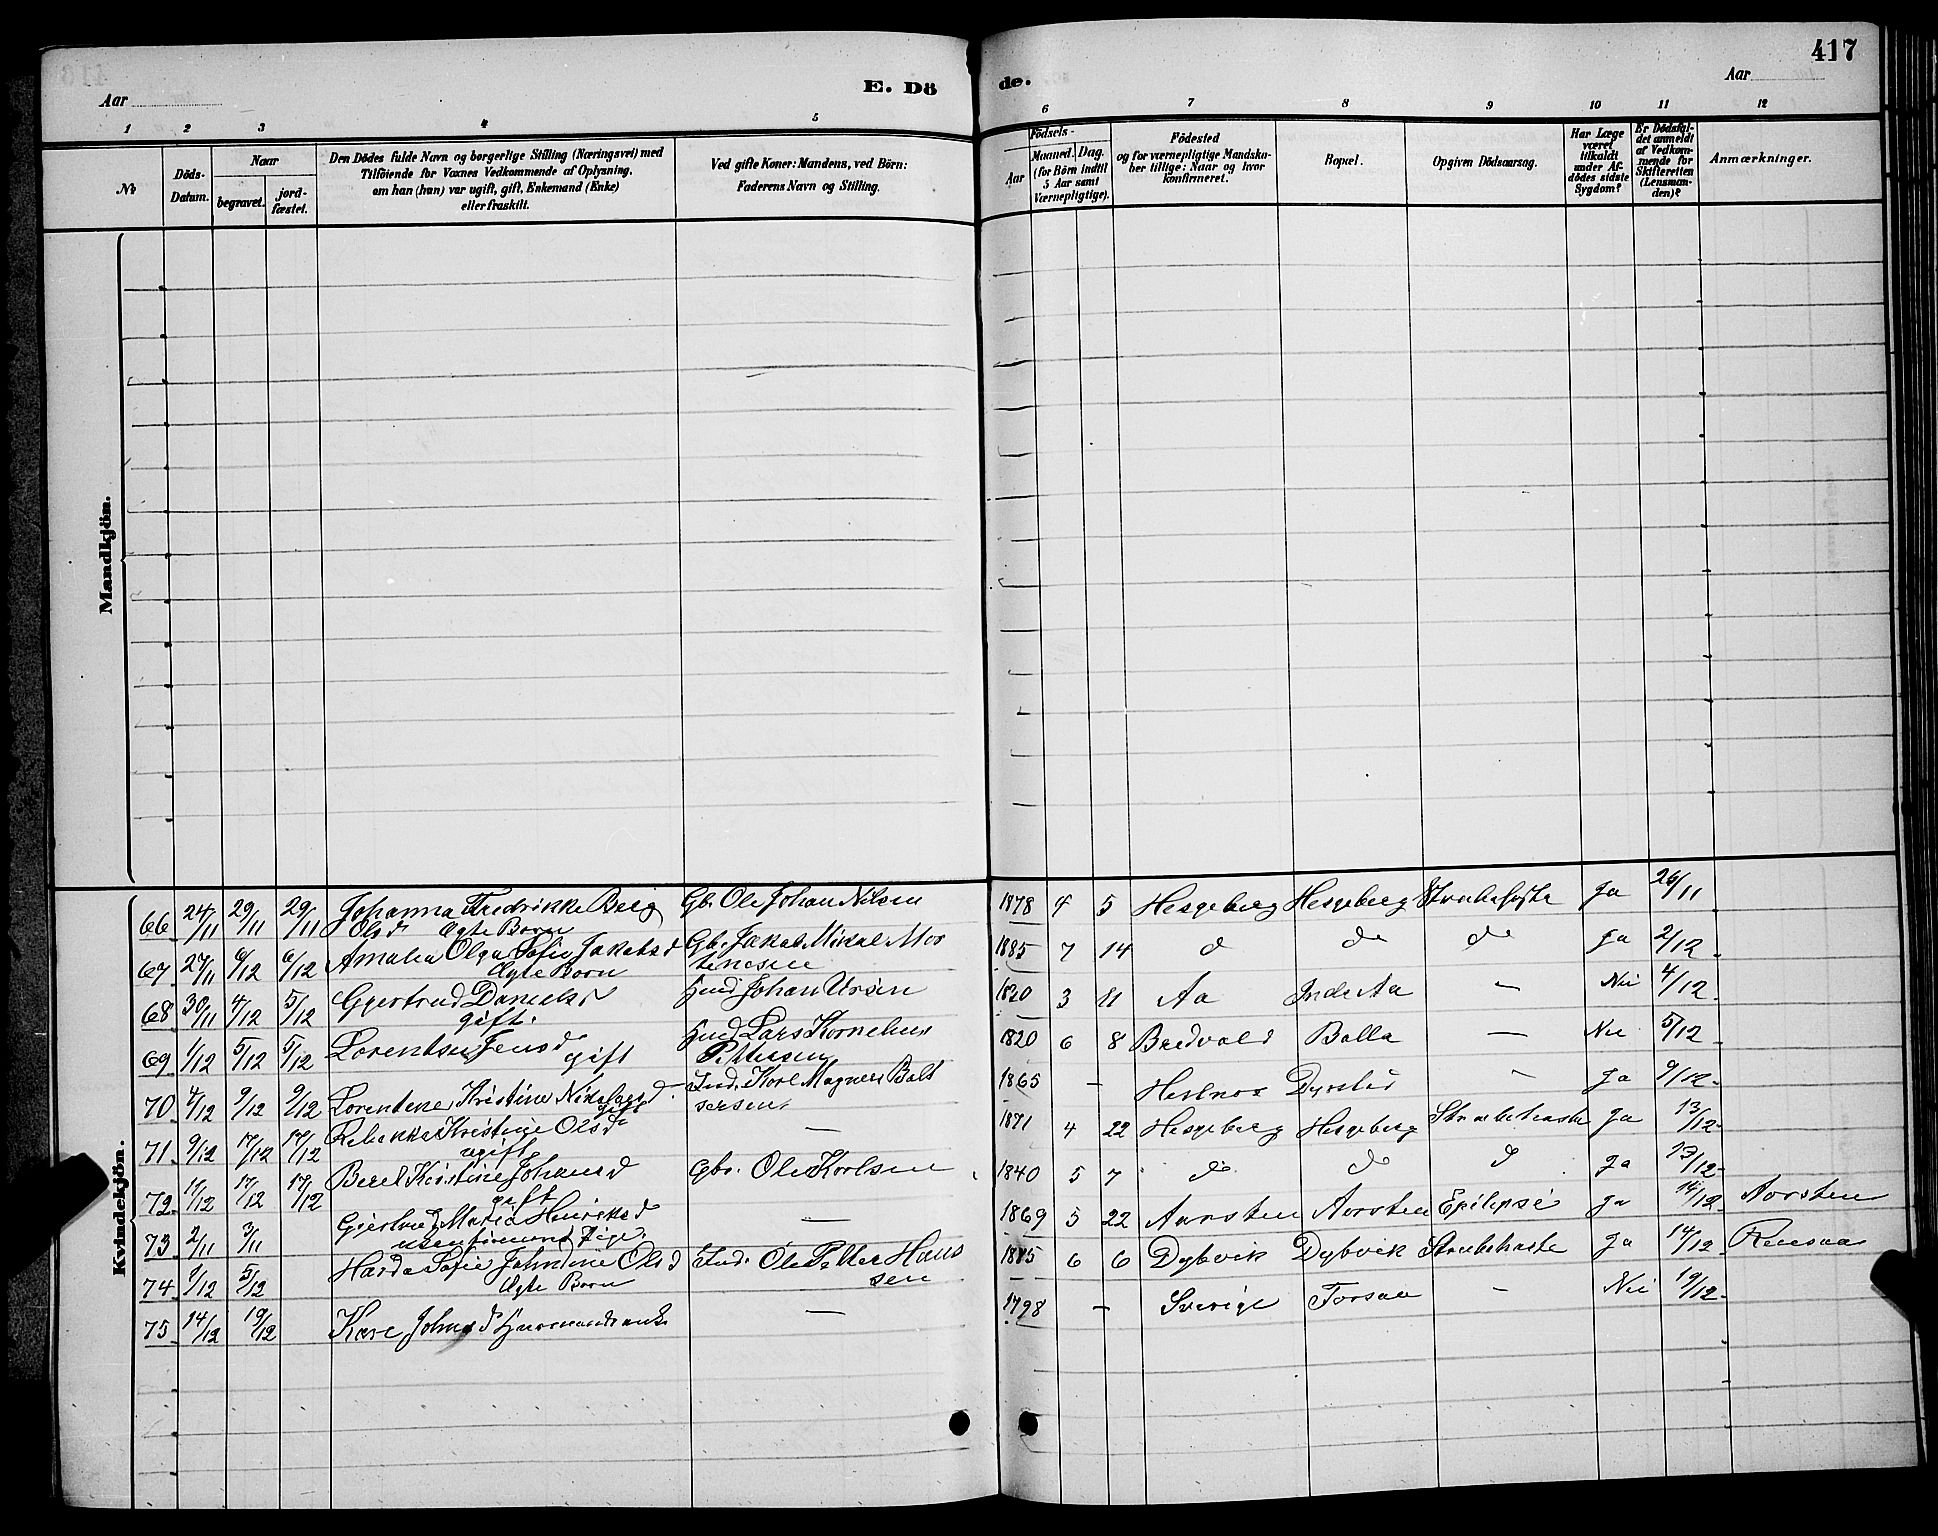 417
Aar
E. Dö
de.
Aar
1 2 3 4 5 6 7 8 9 10 11 12
No
Döds-Datum.
Naar
begravet.
jord-fæstet.
Den Dödes fulde Navn og borgerlige Stilling (Næringsvei) med
Tilföiende for Voxnes Vedkommende af Oplysning,
om han (hun) var ugift, gift, Enkemand (Enke)
eller fraskilt.
Ved gifte Koner: Mandens, ved Börn:
Faderens Navn og Stilling.
Födsels-
Aar
Maaned. Dag.
(for Börn indtil
5 Aar samt
Værnepligtige).
Födested
og for værnepligtige Mandskaber tillige: Naar og hvor
konfirmeret.
Bopæl.
Opgiven Dödsaarsag.
Har Læge
været
tilkaldt
under Afdödes sidste
Sygdom?
Er Dödsfaldet anmeldt
af Vedkommende for
Skifteretten
(Lensmanden)?
Anmærkninger.
Mandkjön.
Kvindekjön.
66 24/11 29/11 29/11 Johanna Fredrikke Berg Gb. Ole Johan Nilsen 1878 4 5 Hesgeberg Hesgeberg Ja 26/11
Olsd Ægte Barn
67 27/11 6/12 6/12 Amalia Olga Sofie Jakobsd Gb. Jakob Mikal Mor 1885 7 14 d do do Ja 2/12
Ægte Barn tenesen
68 30/11 4/12 5/12 Gjertrud Danielsd Johan Ursin 1820 3 11 Aa Indr Aa — Nei 4/12
gift.
69 1/12 5/12 5/12 Lorentse Jensd gift Lars Kornelius 1820 6 8 Bredvold Balla — Nei 5/12
Pettersen
70 4/12 9/12 9/12 Lorentine Kristine Nikolaisd Ind. Karl Magnus Balt 1865 — Hestnes Dyrstad — Ja 9/12
gift sersen
71 9/12 17/12 17/12 Rebekka Kristine Olsd — 1871 4 22 Hesgeberg Hesgeberg Strubehoste Ja 13/12
ugift
72 11/12 17/12 17/12 Beret Kristine Johansd Gbr. Ole Karlsen 1840 5 7 do do d Ja 13/12
gift
73 2/11 3/11 Gjertrud Maria Henriksd — 1869 5 22 Aarsten Aarsten Epilepsi Ja 14/12 Aarsten
Pige.
74 1/12 5/12 Harda Sofie Johntine Olsd Ind. Ole Petter Hans 1885 6 6 Dybvik Dybvik Strubehoste Ja 14/12 Rensaa
Ægte Barn sen
75 14/12 19/12 Kare Johnsd — 1798 — Sverige Forsaa — Nei 19/12